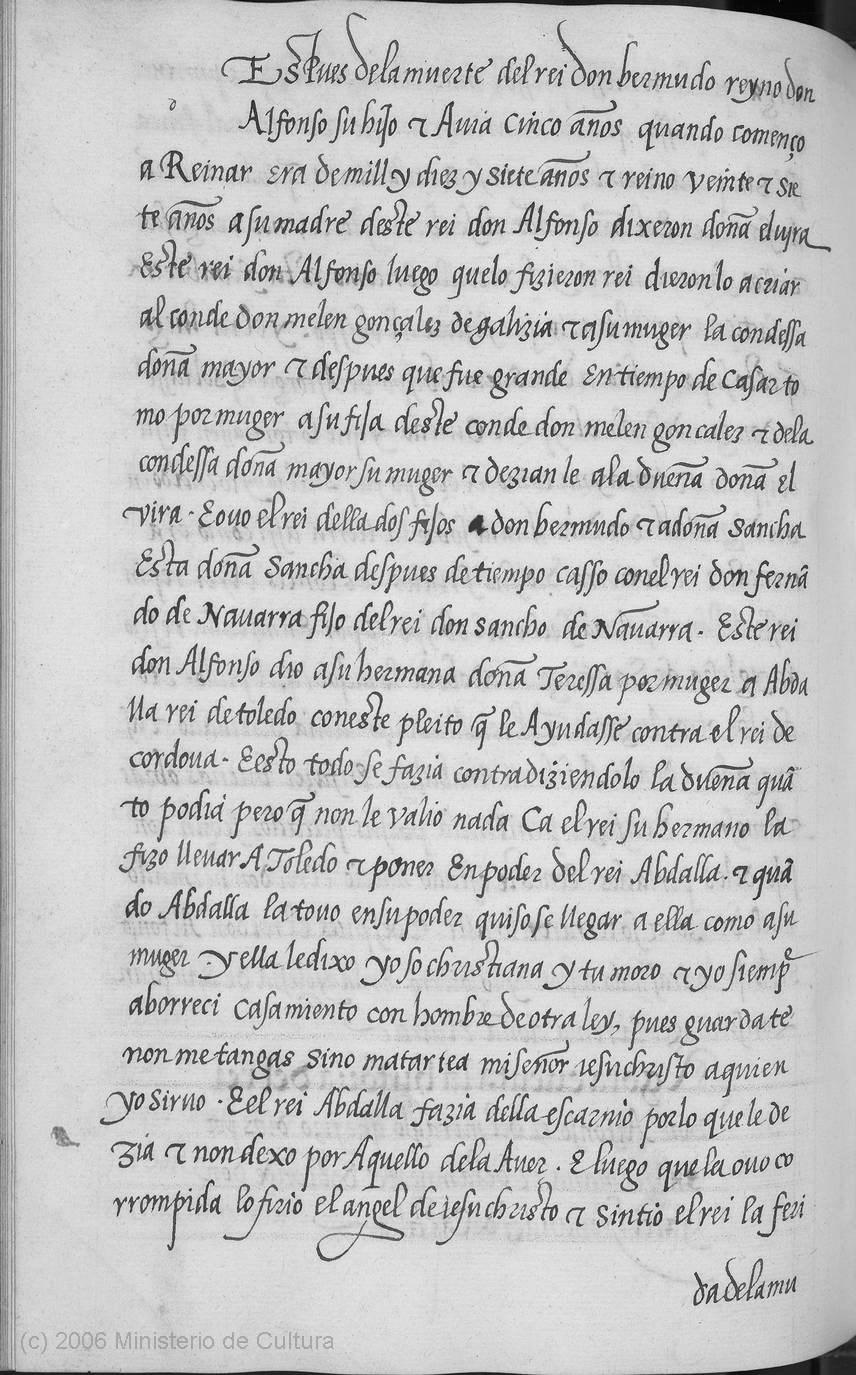 EsPues dela muerte del rei don bermudo reyno don
Alfonso su hijo & Auia cinco años quando començo
a Reinar era de mill y diez y siete años & reino veinte & sie
te años a su madre deste rei don Alfonso dixeron doña eluira
Este rei don Alfonso luego quelo fizieron rei dieron lo a criar
al conde don melen gonçalez de galizia & a su muger la condessa
doña mayor & despues que fue grande En tiempo de Casar to
mo por muger a su fija deste conde don melen goncalez & dela
condessa doña mayor su muger & dezian le ala dueña doña el
vira · E ouo el rei della dos fijos a don bermudo & a doña Sancha
Esta doña Sancha despues de tiempo casso con el rei don fernã
do de Nauarra fijo del rei don sancho de Nauarra · Este rei
don Alfonso dio a su hermana doña Teressa por muger a Abda
lla rei de toledo con este pleito q̃ le Ayudasse contra el rei de
cordoua · E esto todo se fazia contradiziendolo la dueña quã
to podia pero q̃ non le valio nada Ca el rei su hermano la
fizo lleuar A Toledo & poner En poder del rei Abdalla · & quã
do Abdalla la touo en su poder quiso se llegar a ella como a su
muger y ella le dixo yo so christiana y tu moro & yo siemp̃
aborreci casamiento con hombre de otra ley, pues guardate
non me tangas sino matar te a mi señor iesuchristo a quien
yo siruo · E el rei Abdalla fazia della escarnio por lo que le de
zia & non dexo por Aquello de la Auer · E luego que la ouo co
rrompida lo firio el angel de iesuchristo & sintio el rei la feri
da dela mu
(c) 2006 Ministerio de Cultura